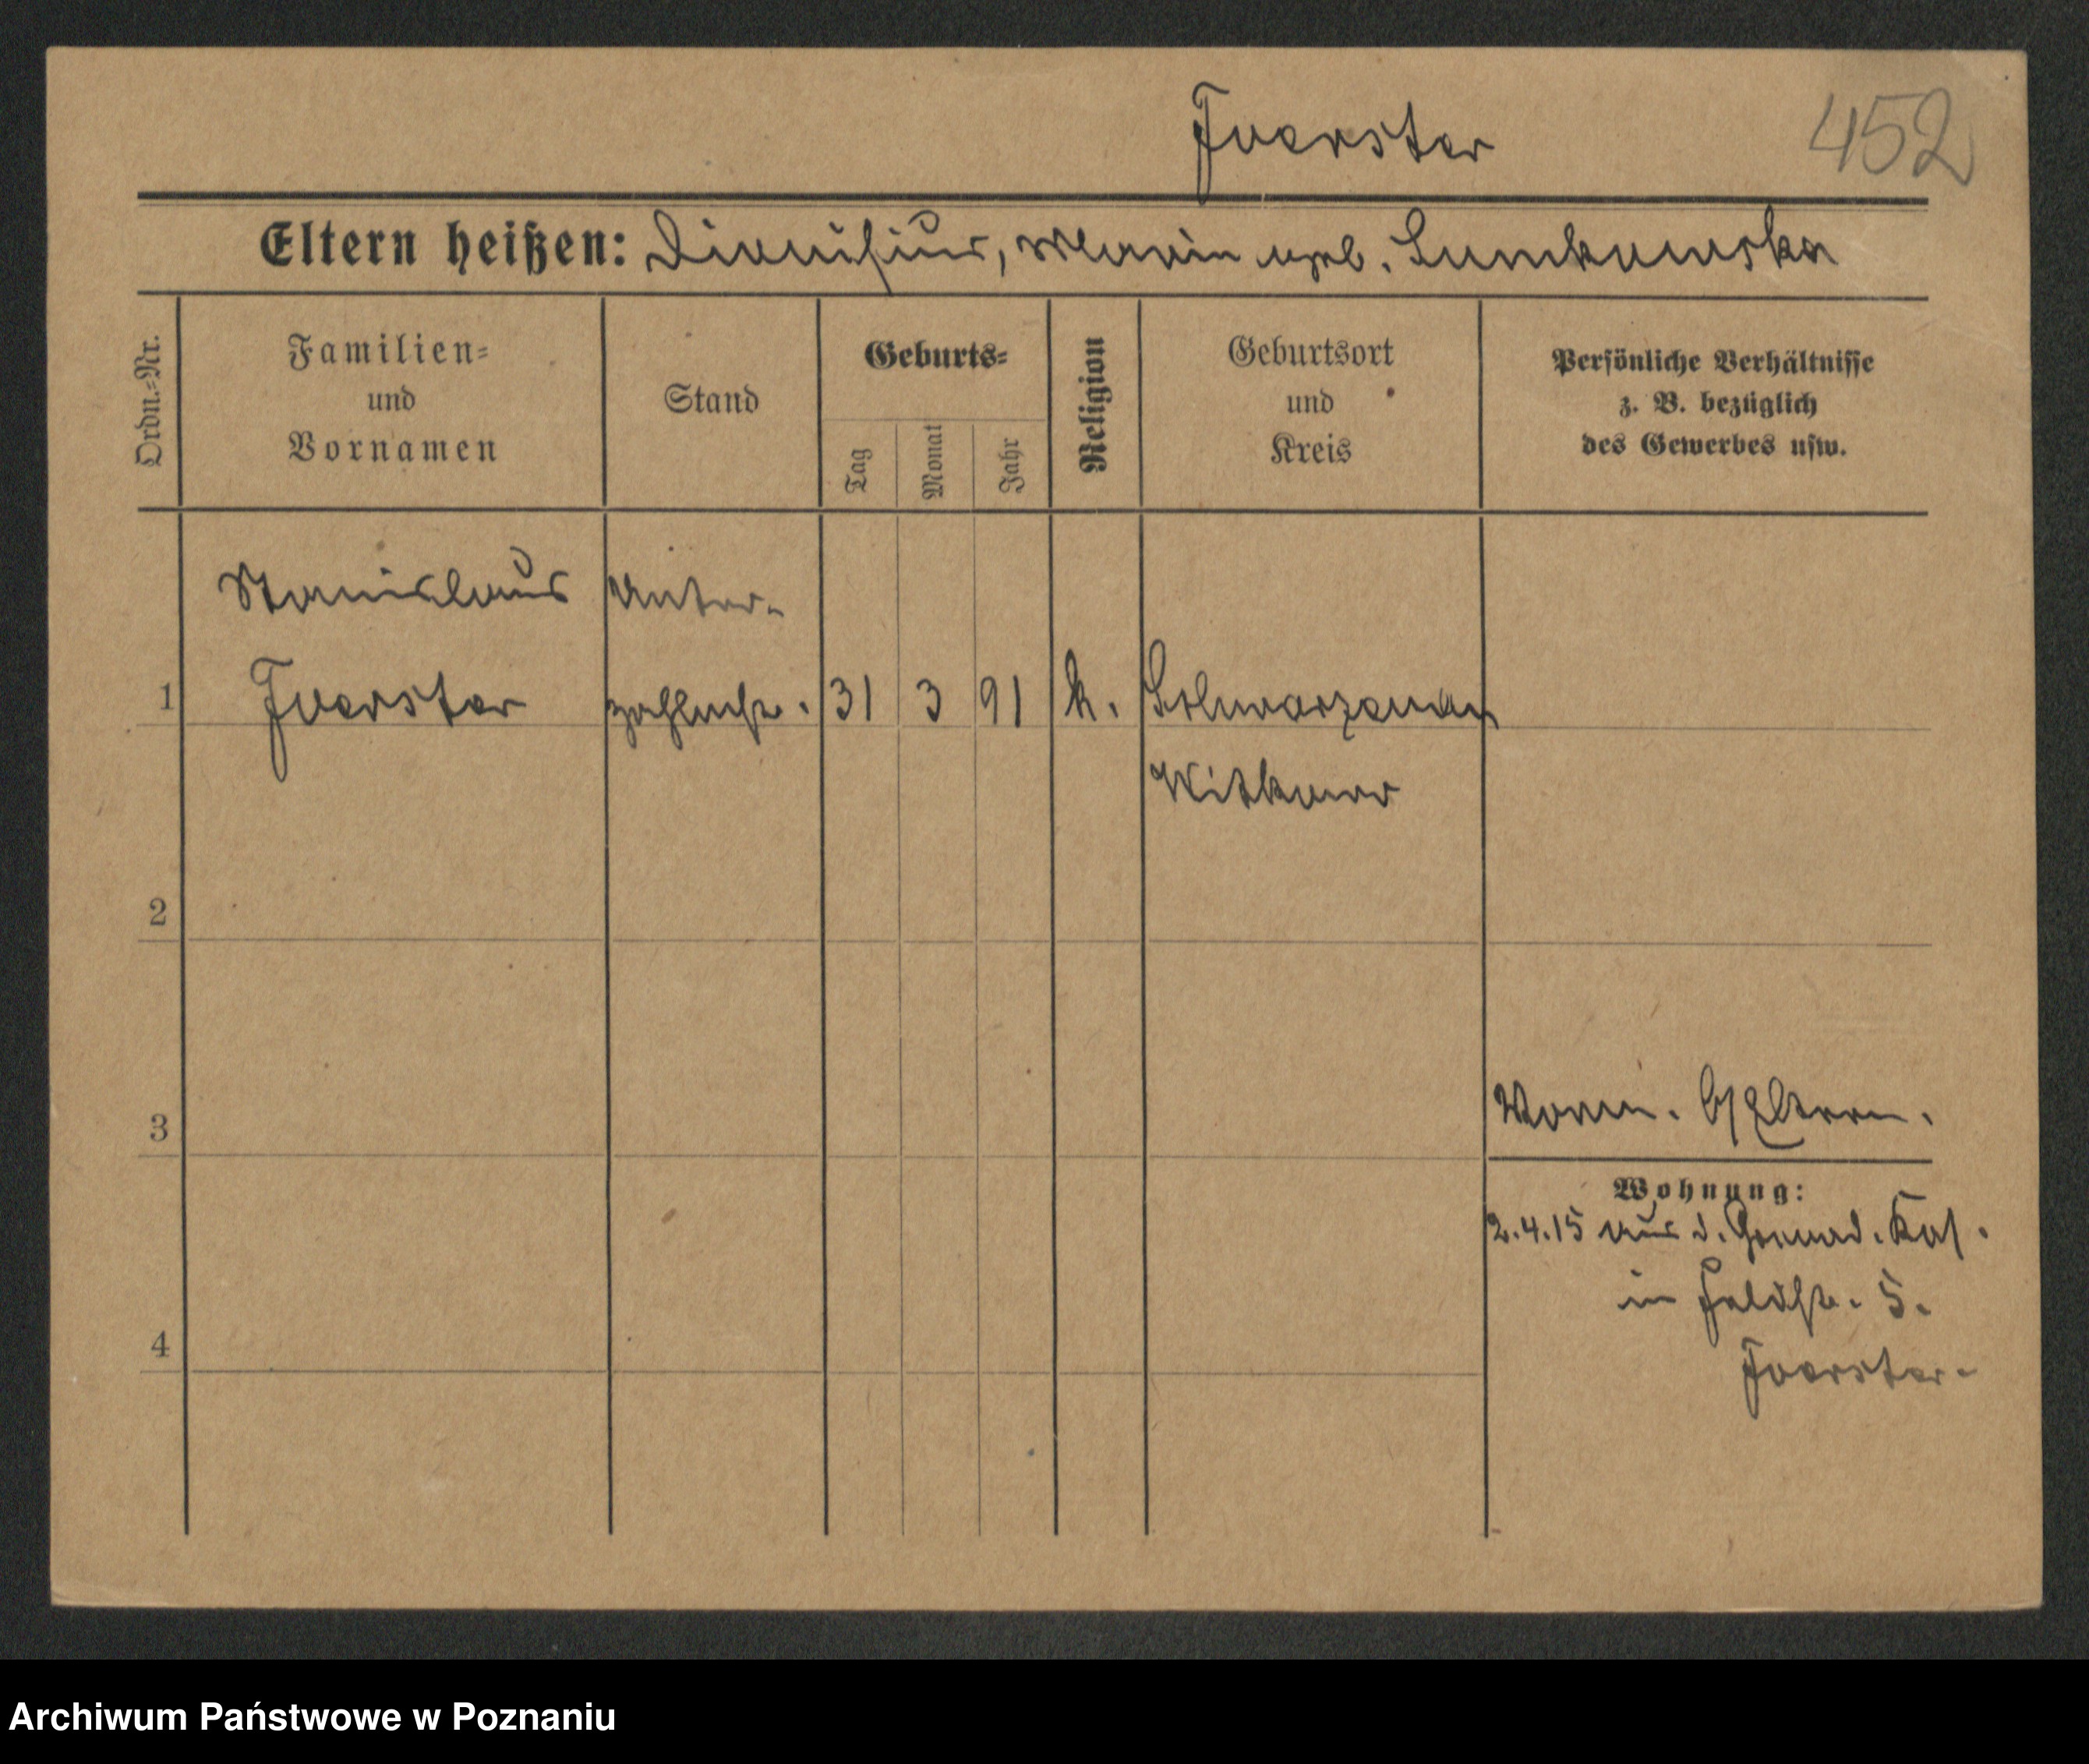 Foerster
452
Eltern heißen: Dionisius, Maria geb. Sumkowska
Ordn.=Nr.
Familien=
und
Vornamen
Stand
Geburts=
Tag
Monat
Jahr
Religion
Geburtsort
und
Kreis
Persönliche Verhältnisse
z. B. bezüglich
des Gewerbes usw.
Stanislaus Unter-
1 Foerster zahlmstr. 31 3 91 k. Schwarzenau
Witkowo
2
3
Eltern.
Wohnung:
2.4.15 aus d. Grenad. Kas.
in Feldstr. 5.
Foerster
4
Archiwum Państwowe w Poznaniu